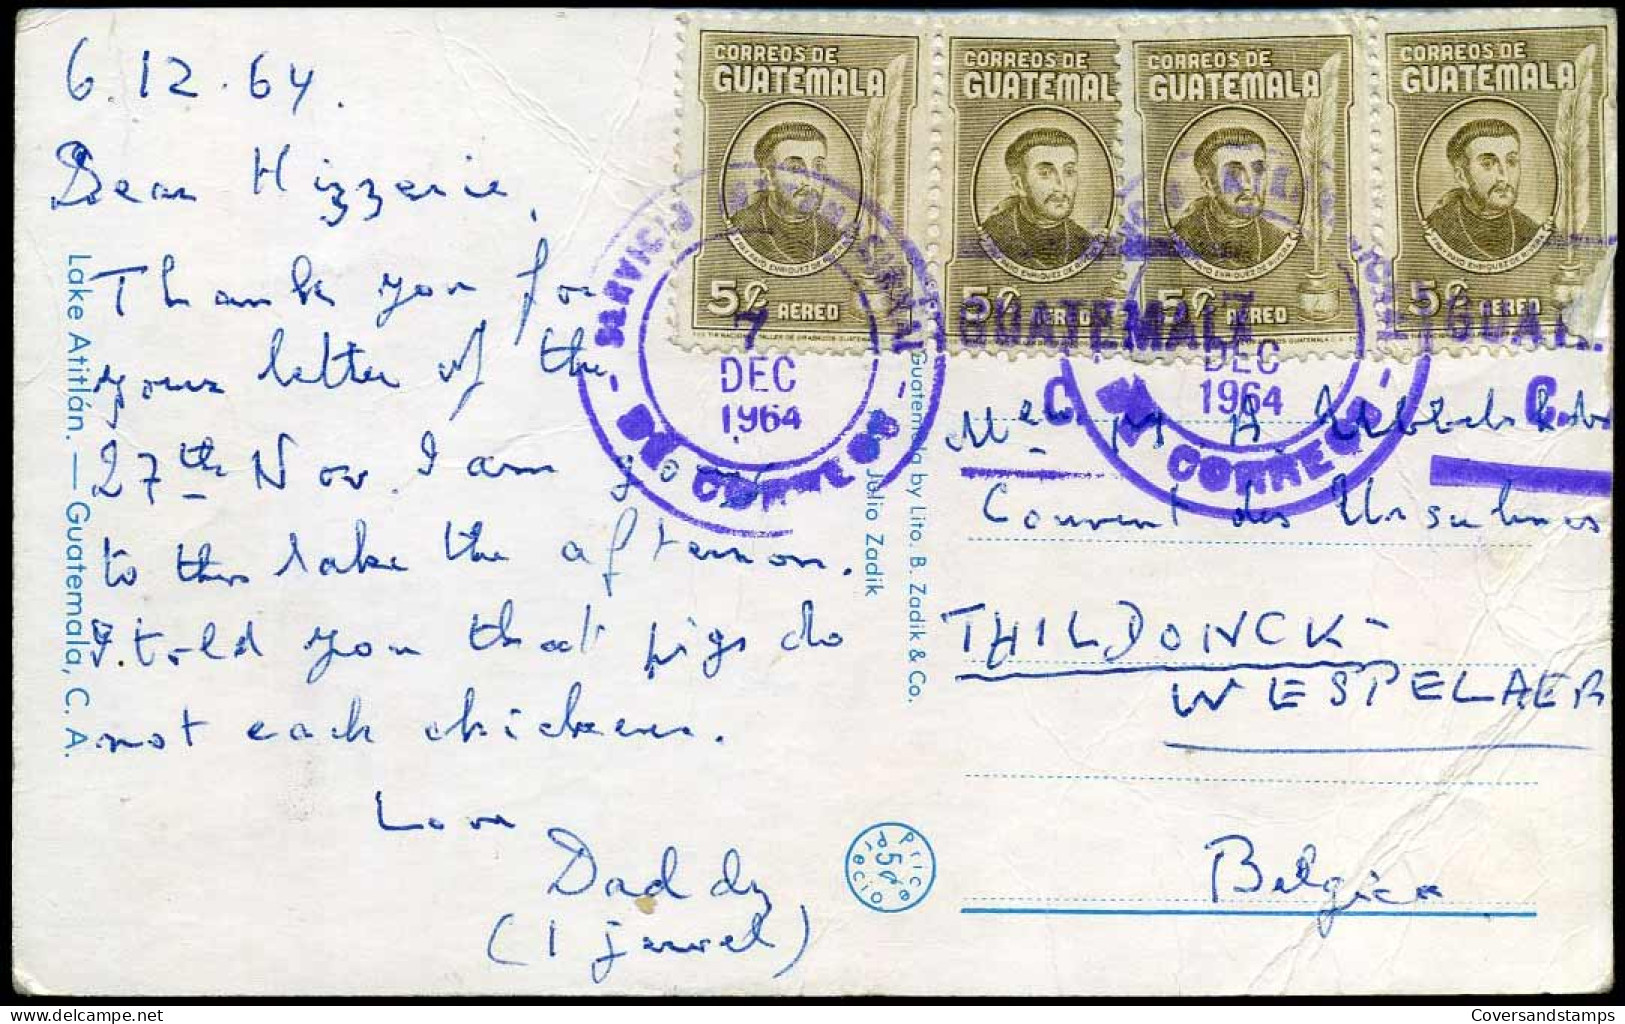 6.12.64.
Dear Hizzerie,
Thank you for
your letter of the
27th Nov. I am going
to this lake the afternoon.
I told you that pigs do
not eat chickens.
Love
Daddy
(1 jewel)
Lake Atitlán. — Guatemala, C. A.
Guatemala by Lito. B. Zadik & Co.
Julio Zadik
Price
Precio
5¢
CORREOS DE
GUATEMALA
5¢ AEREO
CORREOS DE
GUATEMALA
5¢ AEREO
CORREOS DE
GUATEMALA
5¢ AEREO
CORREOS DE
GUATEMALA
5¢ AEREO
SERVICIO INTERNACIONAL
7
DEC
1964
DE CORREOS
GUATEMALA
C.
7
DEC
1964
CORREOS
GUAT
C.
A
Couvent des Ursulines
THILDONCK-
WESPELAER
Belgica
Coversandstamps